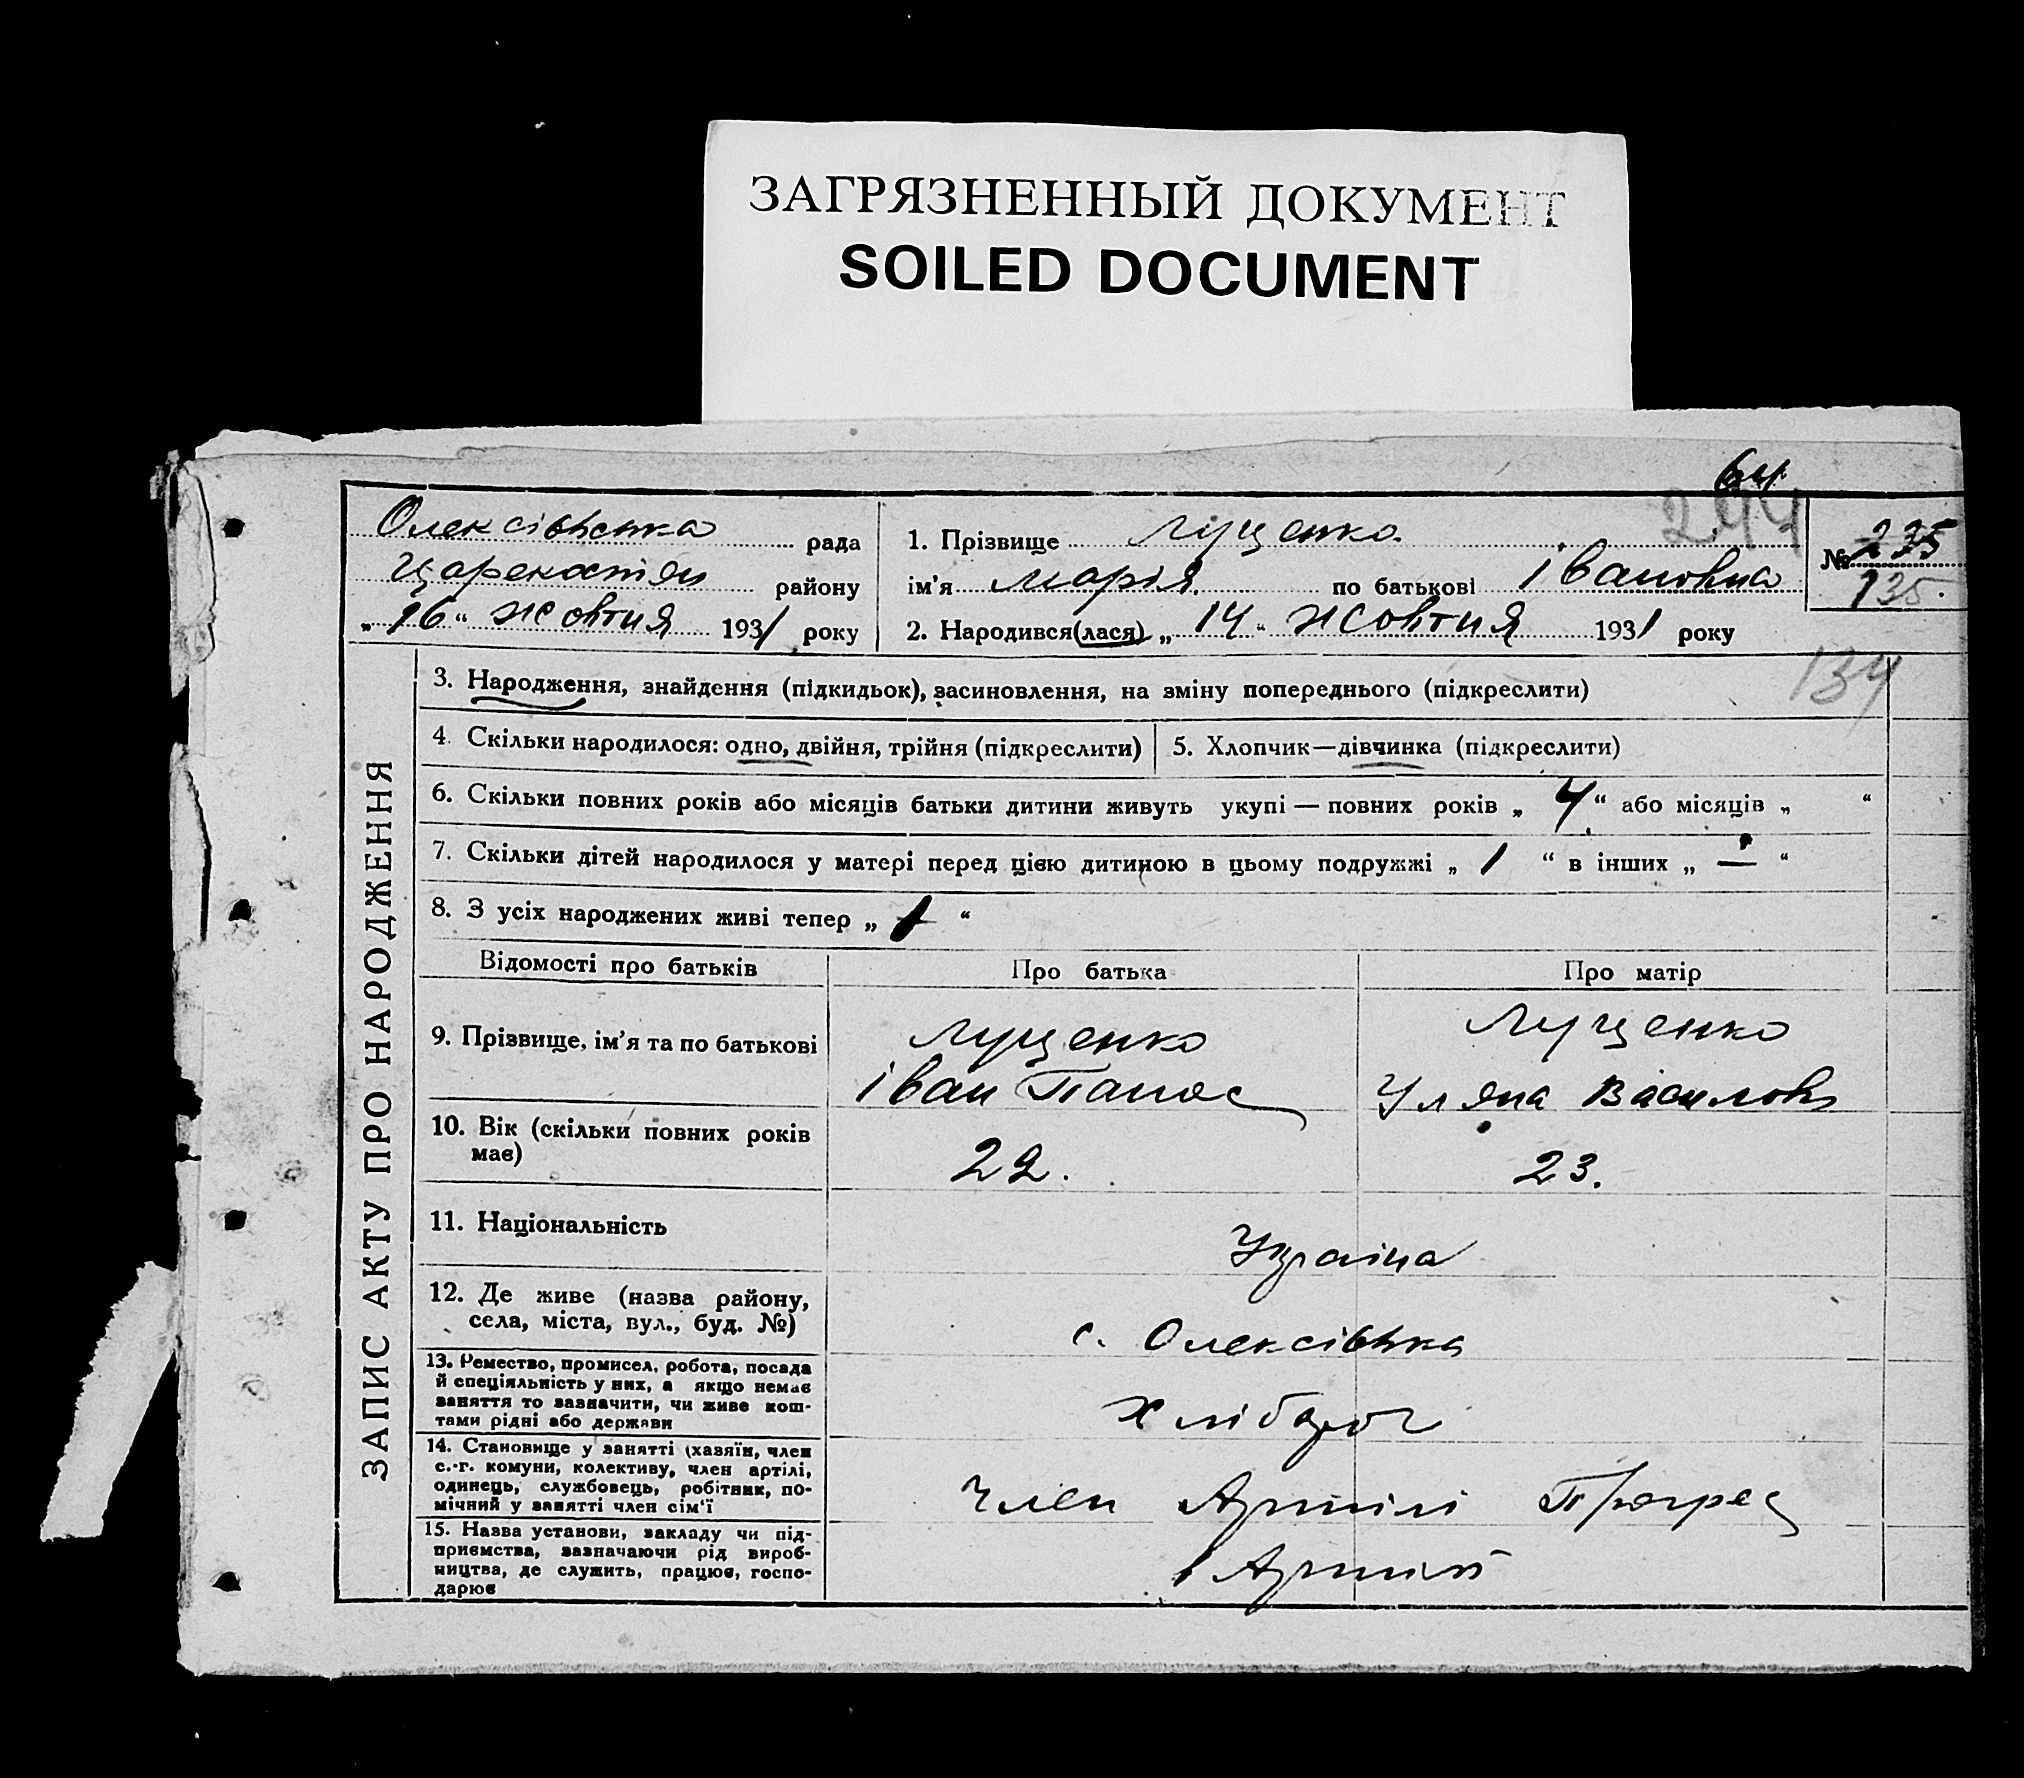 ЗАГРЯЗНЕННЫЙ ДОКУМЕНТ
SOILED DOCUMENT
64
244
Олексівська рада
району
„16“ жовтня 1931 року
1. Прізвище Луценко
ім’я Марія по батькові Івановна
2. Народився(лася) „14“ жовтня 1931 року
№ 235
135.
134
ЗАПИС АКТУ ПРО НАРОДЖЕННЯ
3. Народження, знайдення (підкидьок), засиновлення, на зміну попереднього (підкреслити)
4. Скільки народилося: одно, двійня, трійня (підкреслити)
5. Хлопчик—дівчинка (підкреслити)
6. Скільки повних років або місяців батьки дитини живуть укупі — повних років „ 4 “ або місяців „ “
7. Скільки дітей народилося у матері перед цією дитиною в цьому подружжі „ 1 “ в інших „ — “
8. З усіх народжених живі тепер „ 1 “
Відомості про батьків
Про батька
Про матір
9. Прізвище, ім’я та по батькові
Луценко
Іван Панас
Луценко
Уляна Василовн
10. Вік (скільки повних років
має)
22.
23.
11. Національність
Україна
12. Де живе (назва району,
села, міста, вул., буд. №)
с. Олексівка
13. Ремество, промисел, робота, посада
й спеціяльність у них, а якщо немає
заняття то зазначити, чи живе кош-
тами рідні або держави
хлібороб
14. Становище у занятті (хазяїн, член
с.-г. комуни, колективу, член артілі,
одинець, службовець, робітник, по-
мічний у занятті член сім’ї
Член Артілі Прогрес
15. Назва установи, закладу чи під-
приємства, зазначаючи рід вироб-
ництва, де служить, працює, госпо-
дарює
в Артілі